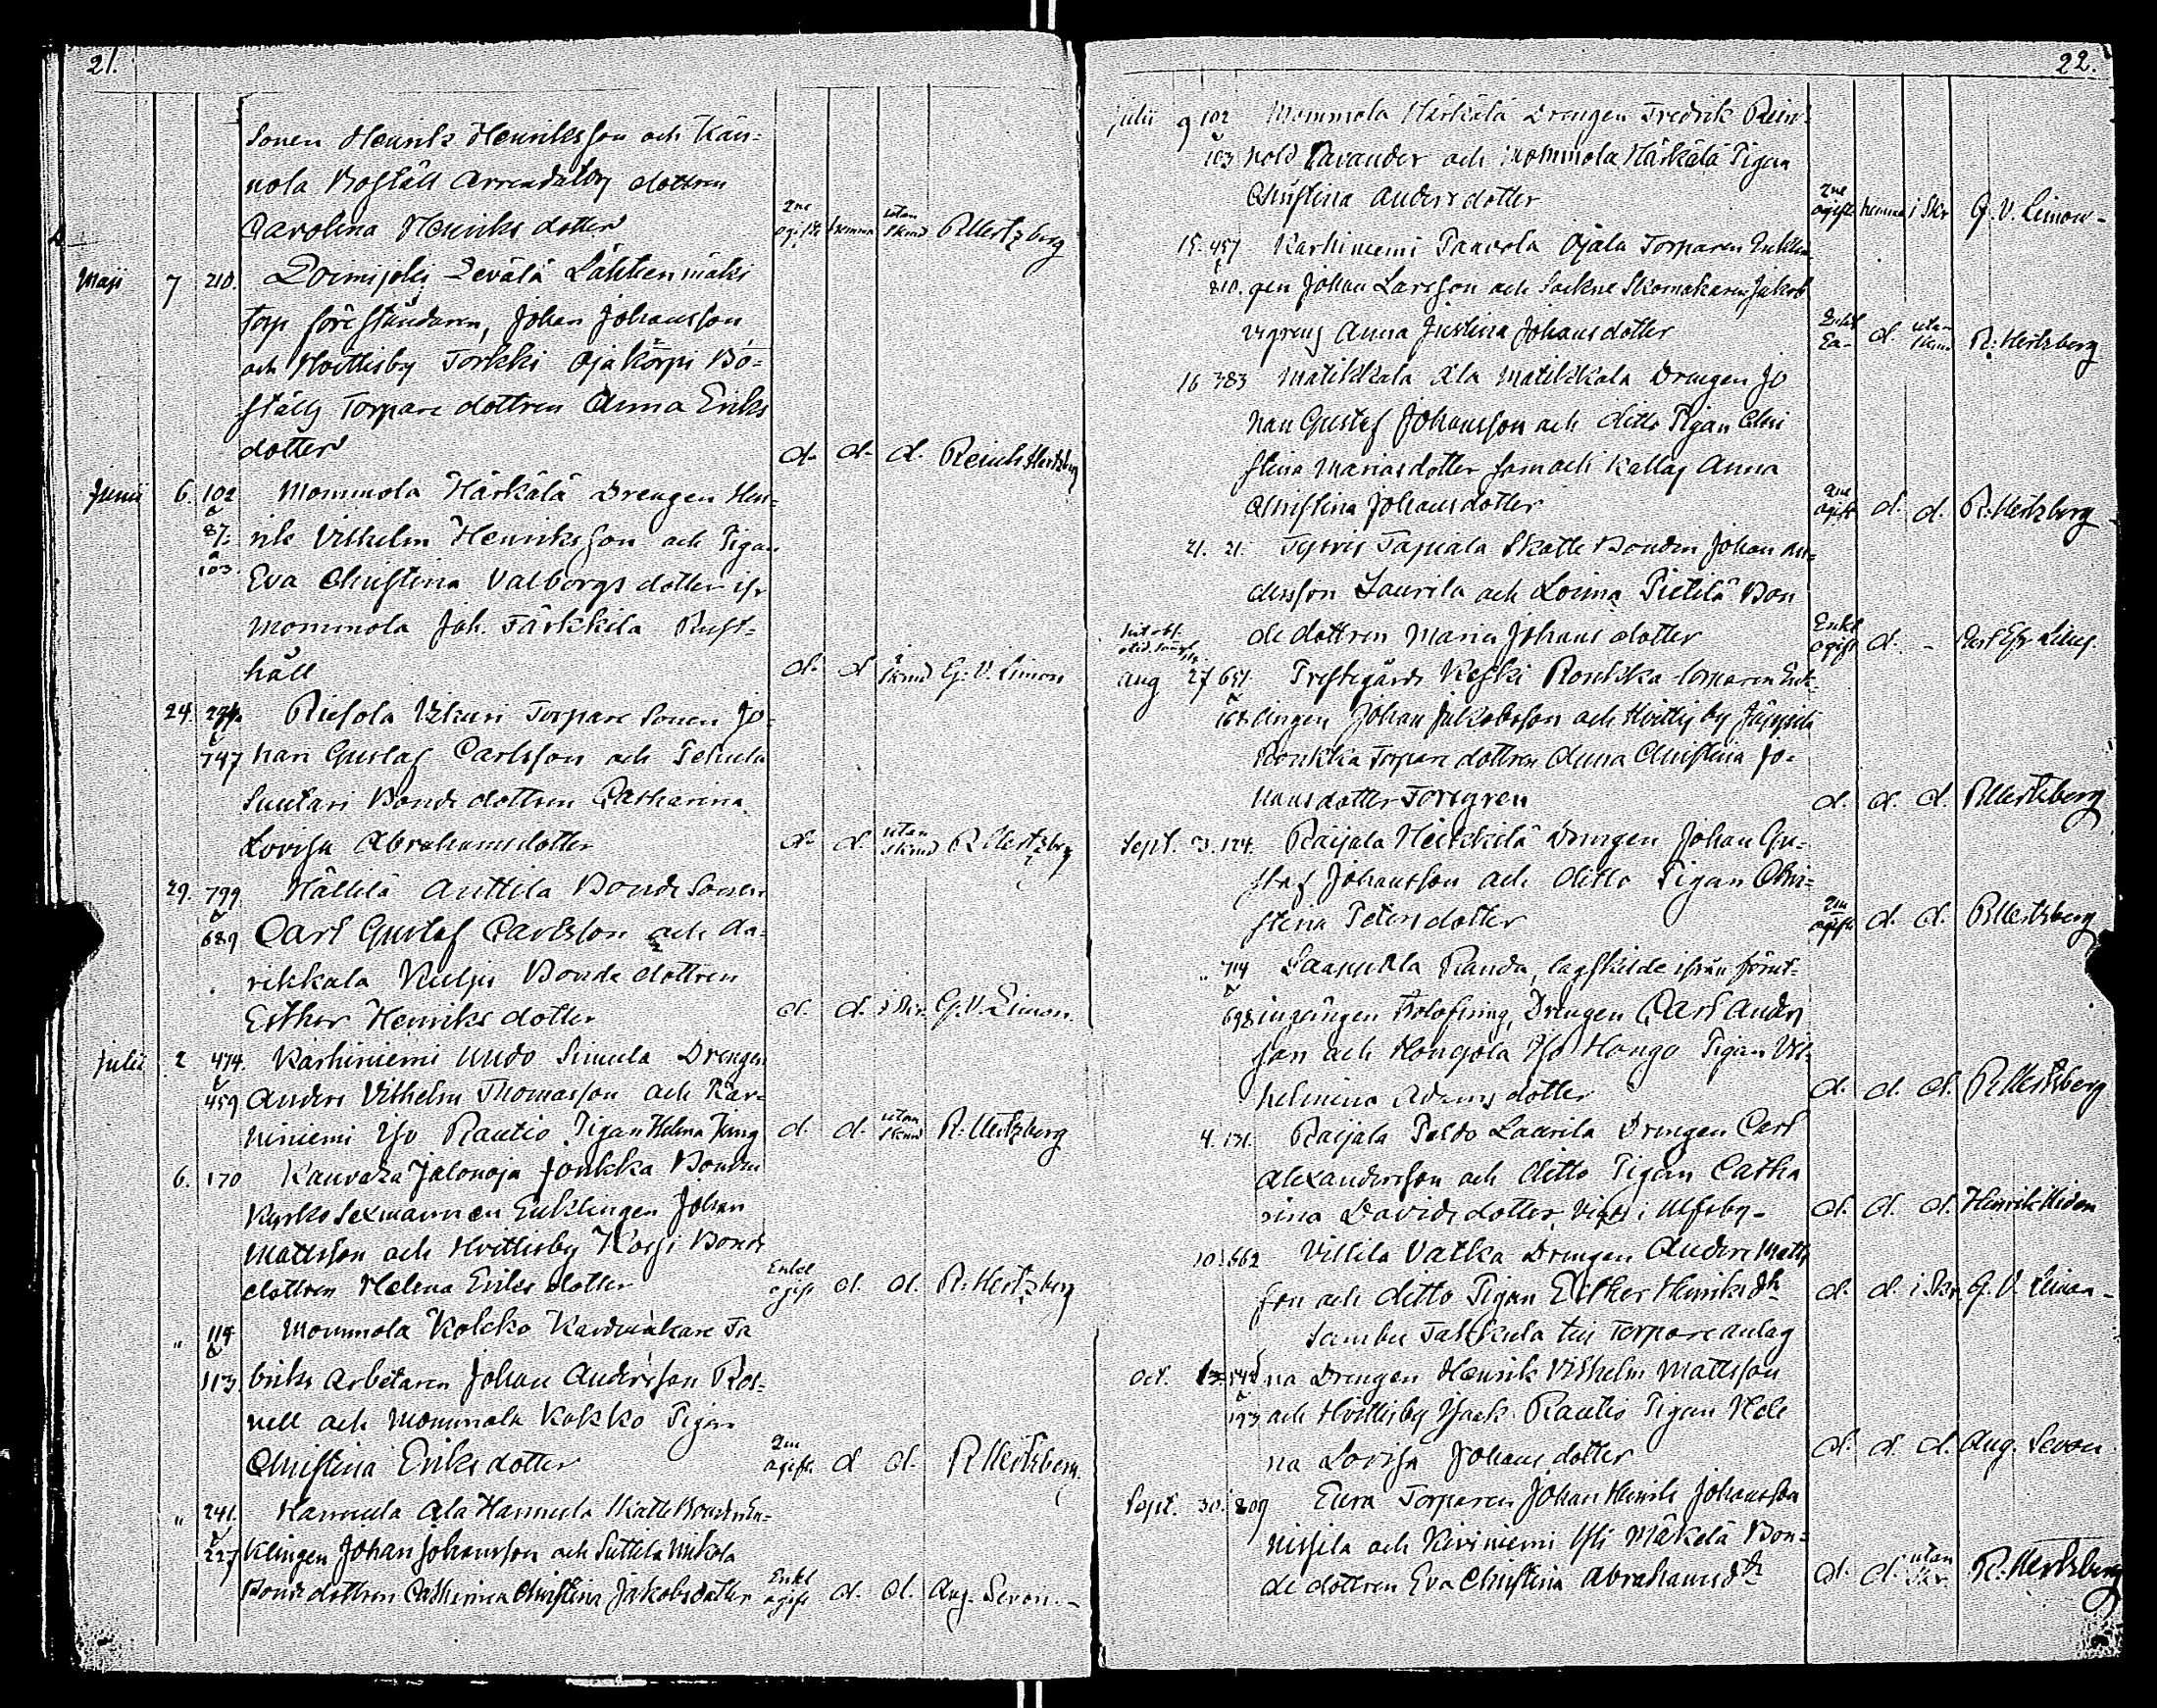 21.
Sonen Henrik Henriksson och Kän-
nola Boställ Arrendators dottren
Carolina Henriks dotter 2ne ogifte hemma utan Skrud R Hertzberg
Maji 7 210. Loimijoki Levälä Lähtienmäki
torp föreståndaren, Johan Johansson
och Hvittisby Torkki Ojakorpi Bo-
ställs Torpare dottren Anna Eriks
dotter d. d. d. Reinh Hertzberg
Junii 6. 102 Mommola Härkälä Drengen Hen-
87. rik Vilhelm Henriksson och Pigan
103. Eva Christina Valborgs dotter ifr
Mommola Joh. Tärkkilä Rust-
håll d. d. i Skrud G. V. Limon
24. Riesola Uskuri Torpare Sonen Jo-
747 han Gustaf Carlsson och Pehula
Suutari Bonde dottren Catharina
Lovisa Abrahamsdotter d. d. utan Skrud R Hertzberg
29. 799 Hällilä Anttila Bonde Sonen
689 Carl Gustaf Carlsson och Sa-
rikkala Kulju Bonde dottren
Esther Henriks dotter d. d. i Skr. G. V. Limon.
Julii 2 474. Karhiniemi Uudo Simula Drengen
459 Anders Vilhelm Thomasson och Kar-
hiniemi Iso Rautio Pigan Helena d. d. utan Skrud R. Hertzberg
6. 170 Kauvatsa Jalonoja Jonkka Bonden
Kyrko Sexmannen Enklingen Johan
Mattsson och Hvittisby Bonde
dottren Helena Eriks dotter Enkl ogift d. d. R. Hertzberg
" 114 Mommola Kokko Kardmakare Fa
113. briks Arbetaren Johan Andersson Ros-
nell och Mommola Kokko Pigan
Christina Eriks dotter 2ne ogifte d d. R Hertzberg.
" 241. Hannula Ala Hannula Skatte Bonden En-
227 klingen Johan Johansson och Suttila Mikola
Bonde dottren Catharina Christina Jakobsdotter Enkl ogift d. d. Aug. Sevon. -
22.
Julii 9 102 Mommola Härkälä Drengen Fredrik Rein-
103 hold Lavander och Mommola Härkälä Pigan
Christina Anders dotter 2ne ogifte hemma i Skr G. V. Limon -
15. 457 Karhiniemi Paavola Ojala Torparen Enklin
810. gen Johan Larsson och Sockne Skomakaren Jakob
Anna Justina Johans dotter Enkl Ea- d. utan Skrud R. Hertzberg
16 383 Matikkala Ala Matikkala Drengen Jo
han Gustaf Johansson och ditto Pigan Chri
stina Mariasdotter som och kallas Anna
Christina Johans dotter 2ne ogift d. d. R. Hertzberg
21. 21. Tyrvis Tapiala Skatte Bonden Johan An-
dersson Laurila och Loima Pietilä Bon
de dottren Maria Johans dotter Enkl ogift d. -
Aug 27 651. Prestgårds Keski Ronkka torparen Enk-
168 lingen Johan Jakobsson och Hvittisby
Ronkka Torpare dottren Anna Christina Jo-
hans dotter Forsgren d. d. d. R Hertzberg
Sept. 3. 124. Raijala Heikkilä Drengen Johan Gu-
staf Johansson och ditto Pigan Chri-
stina Peters dotter 2ne ogifte d. d. R Hertzberg
" 714 Randa, lagskilde ifrån förut-
698 ingången trolofning, Drengen Carl Anders
son och Hongola Iso Hongo Pigan Vil-
helmina Adams dotter d. d. d. R Hertzberg
4. 131. Raijala Peldo Laurila Drengen Carl
Alexandersson och ditto Pigan Catha
rina Davids dotter, Vigde i Ulfsby - d. d. d. Henrik Hidén
10. 662 Villilä Vatka Drengen Anders Matts
son och ditto Pigan Esther Henriks dtr d. d. i Skr. G. V. Limon -
Sambu Talkkula tus Torpare anlag
Oct. 13. na Drengen Henrik Vilhelm Mattsson
193 och Hvittisby Isaak Rautio Pigan Hele
na Lovisa Johans dotter d. d. d. Aug. Sevon.
Sept. 30. 809 Eura Torparen Johan Henrik Johansson
Nissila och Kiviniemi Yli Mäkelä Bon-
de dottren Eva Christina Abrahamsdtr d. d. utan Skr. R. Hertzberg